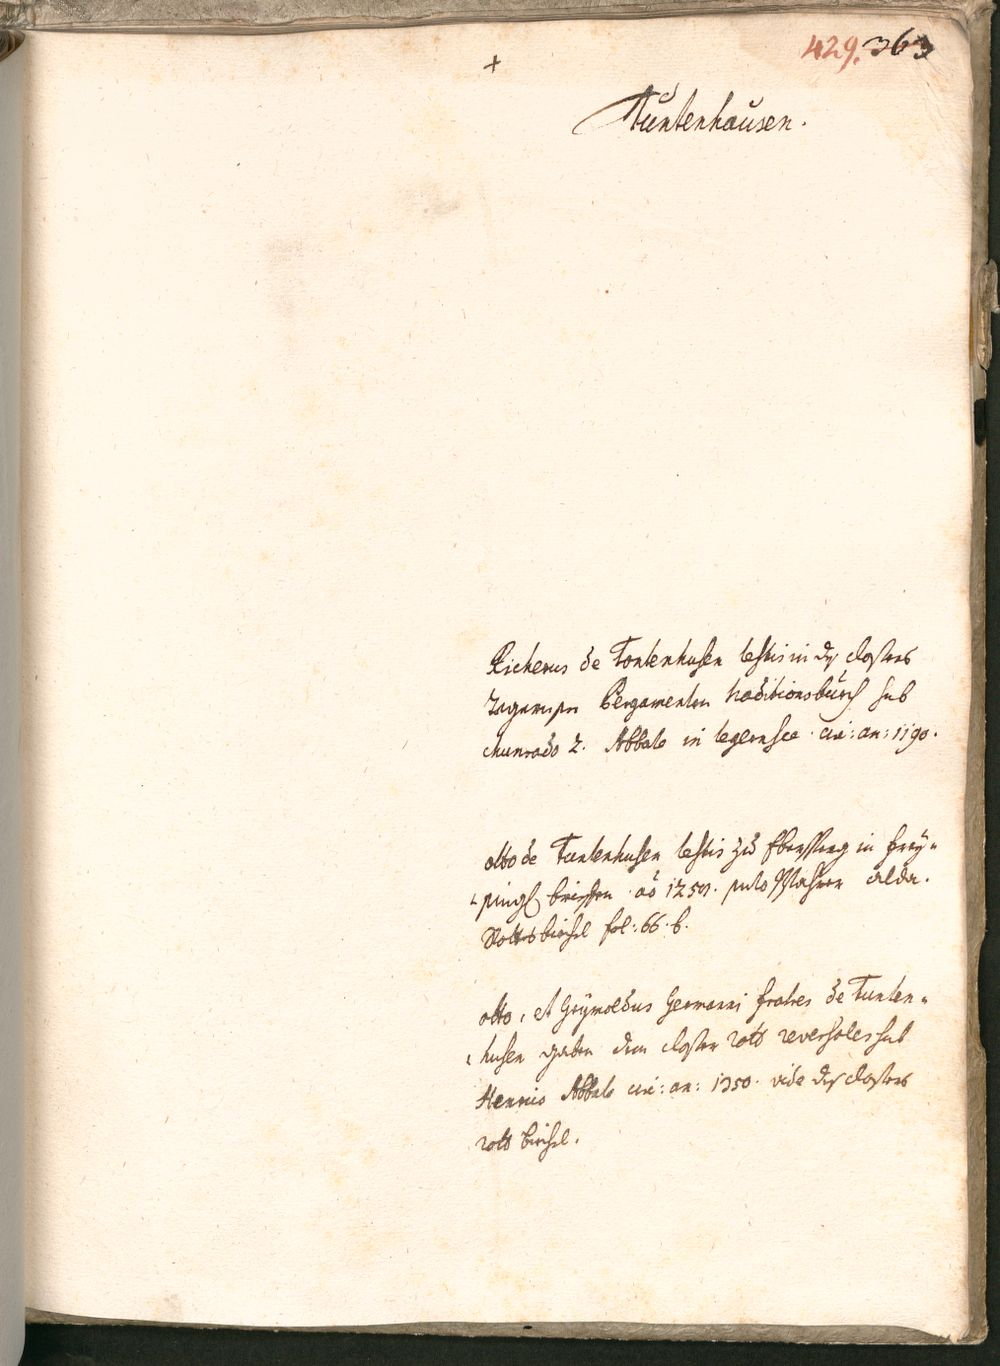 429. 363
+
Tuntenhausen.
Richerus de Tontenhusen testis in deß closters
Tegernsee Pergamenten traditionsbuch sub
chunrado 2. Abbate in tegernsee · cir: an: 1190.
otto de Tuntenhusen testis zu Eberspeg in frey-
singl brieffen ao 1250. alda.
fol: 66. b.
otto, et Grymoldus Germani fratres de Tunten-
husen gaben dem closter rott reversales sub
Henrico Abbate cir: an: 1350. vide deß closters
rott biechl.